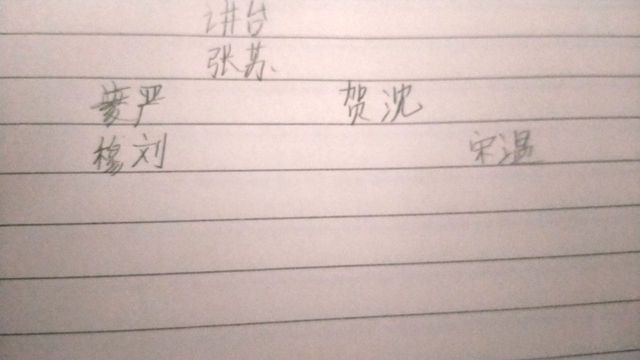 讲台
张苏
严 贺沈
穆刘 宋温